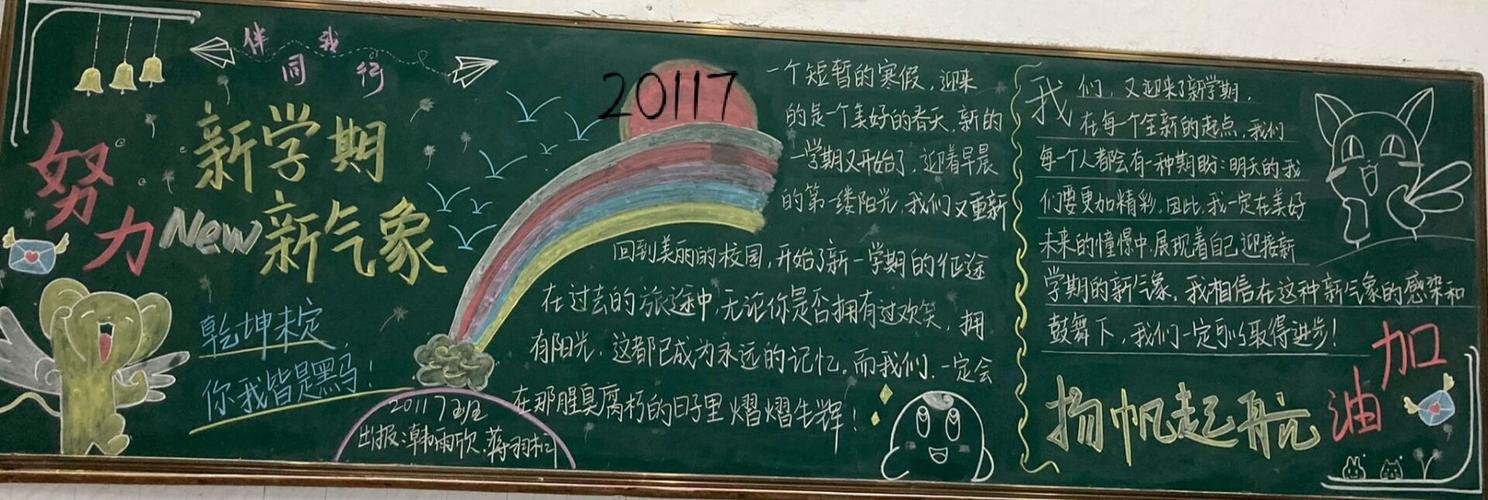 伴我
同行
努力
新学期
New 新气象
乾坤未定
你我皆是黑马！
20117
一个短暂的寒假，迎来
的是一个美好的春天，新的
一学期又开始了，迎着早晨
的第一缕阳光，我们又重新
回到美丽的校园，开始了新一学期的征途
在过去的旅途中，无论你是否拥有过欢笑，拥
有阳光，这都已成为永远的记忆，而我们，一定会
在那腥臭腐朽的日子里熠熠生辉！
20117班
出报：韩雨欣、蒋羽
我们，又迎来了新学期，
在每一个全新的起点，我们
每一个人都会有一种期盼：明天的我
们要更加精彩，因此，我一定在美好
未来的憧憬中，展现着自己，迎接新
学期的新气象，我相信在这种新气象的感染和
鼓舞下，我们一定可以取得进步！
扬帆起航
加油